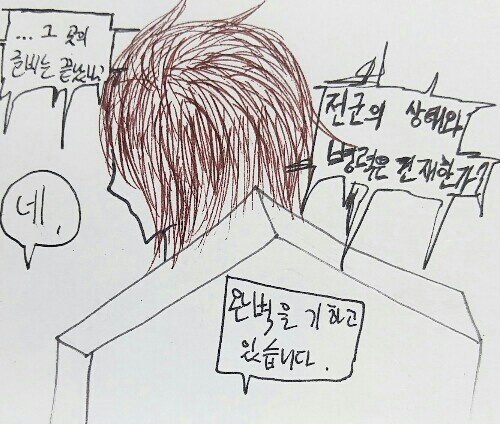 ... 그 곳의
준비는 끝났나?
네.
전군의 상태와
병력은 건재한가?
완벽을 기하고
있습니다.